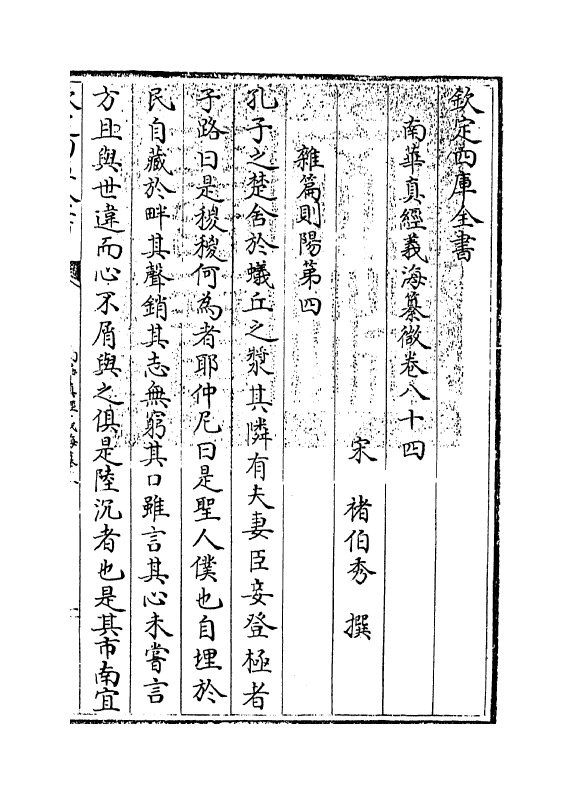 欽定四庫全書
南華真經義海纂微卷八十四
宋 褚伯秀 撰
雜篇則陽第四
孔子之楚舍於蟻丘之漿其隣有夫妻臣妾登極者
子路曰是稯稯何為者耶仲尼曰是聖人僕也自埋於
民自藏於畔其聲銷其志無窮其口雖言其心未嘗言
方且與世違而心不屑與之俱是陸沉者也是其市南宜